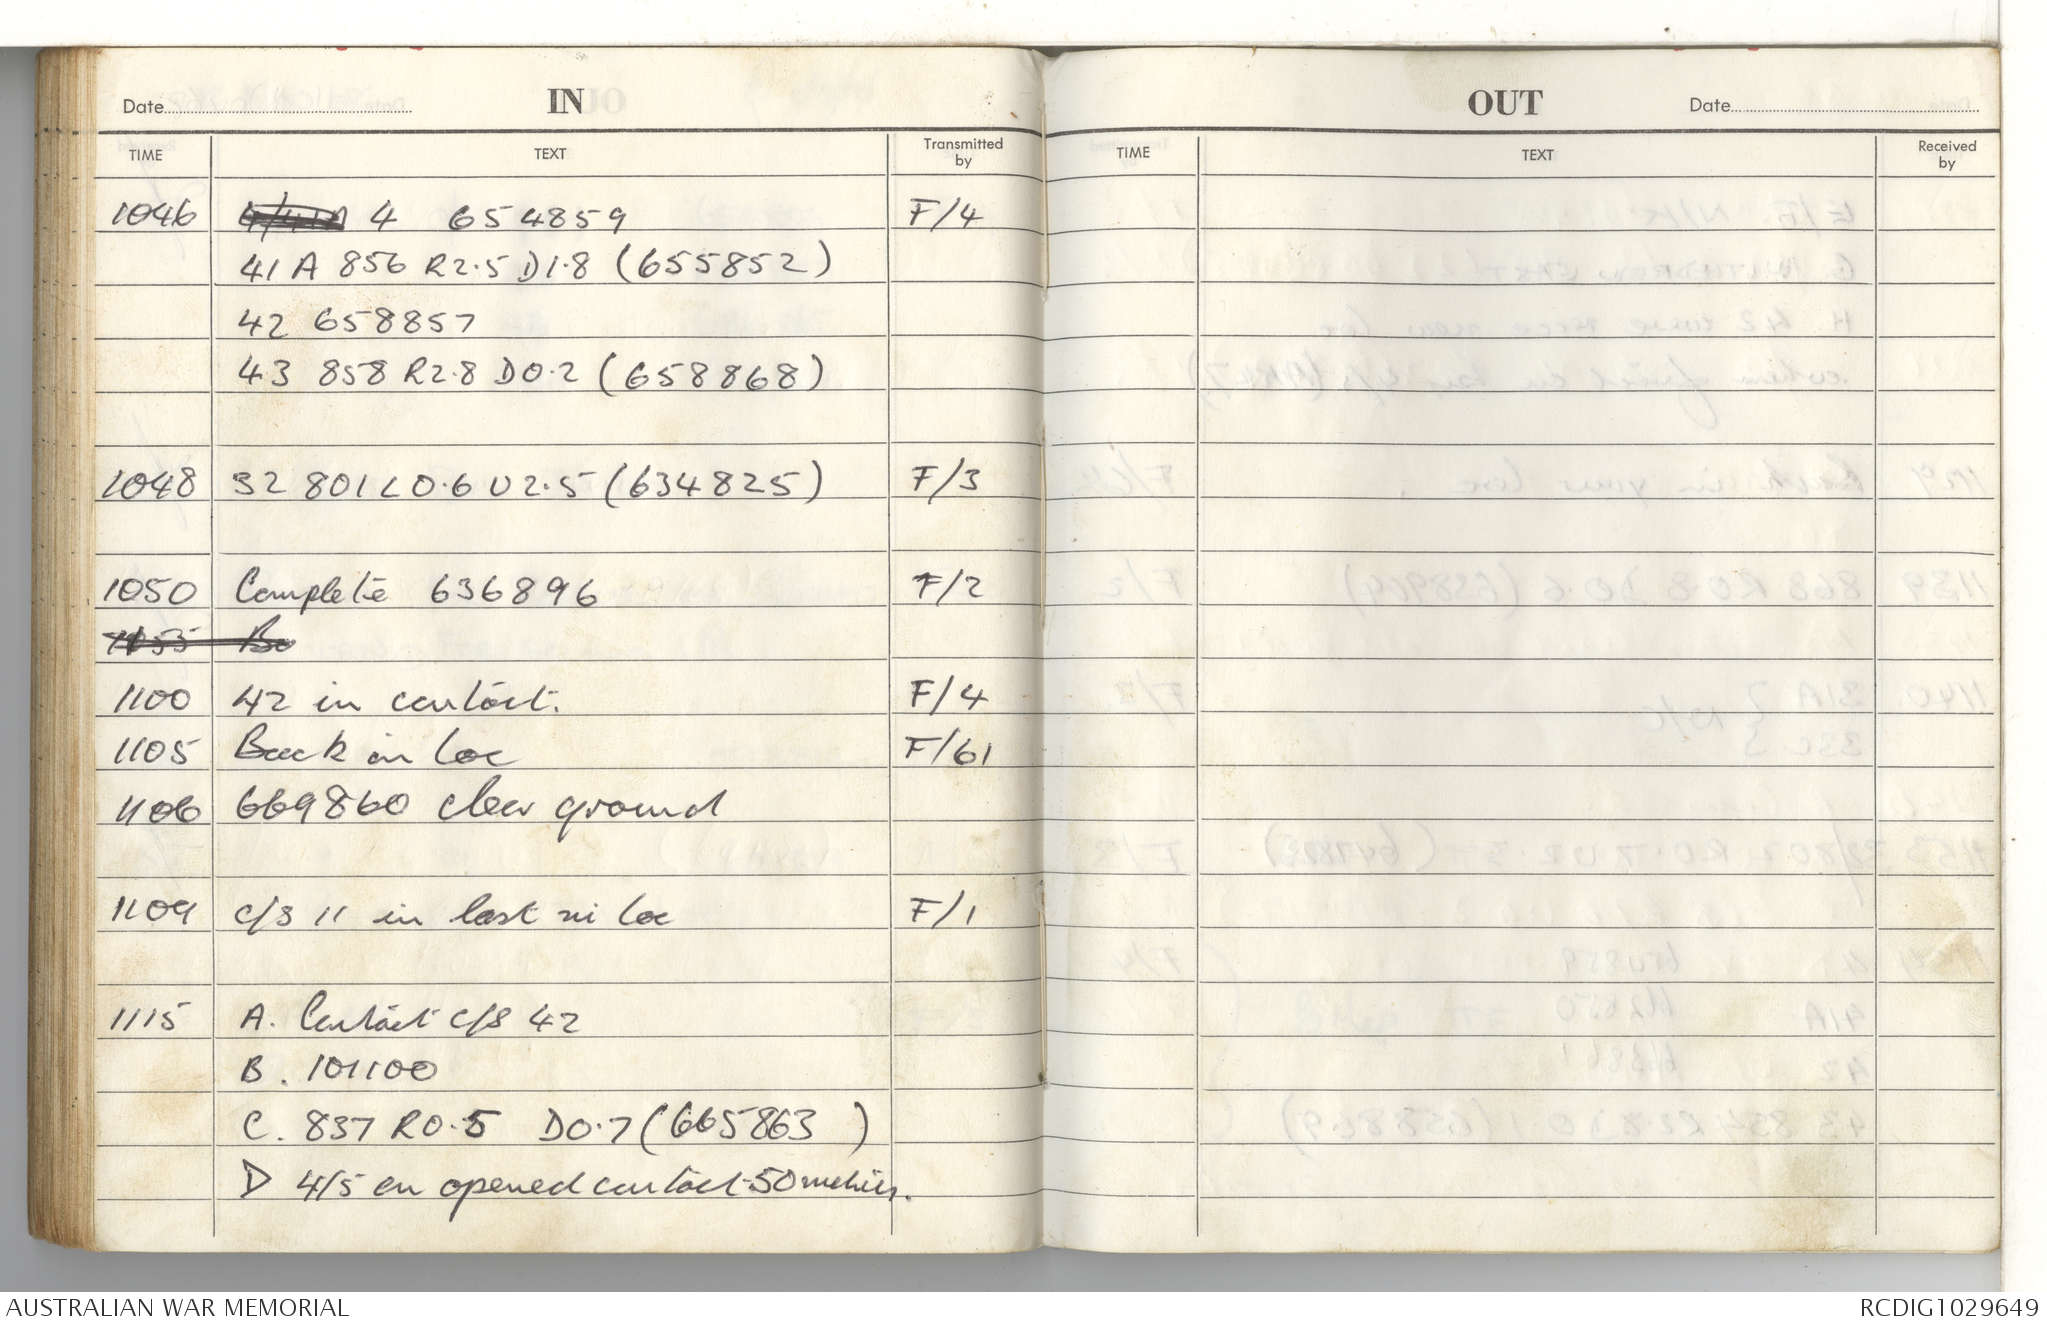 Date IN
TIME TEXT Transmitted by
1046 4 654859 F/4
41A 856 R2.5 D1.8 (655852)
42 658857
43 858 R2.8 D0.2 (658868)
1048 32 801 L0.6 U2.5 (634825) F/3
1050 Complete 636896 F/2
1055 Bo
1100 42 in contact. F/4
1105 Back in loc F/61
1106 669860 clear ground
1109 c/s 11 in last ni loc F/1
1115 A. Contact c/s 42
B. 101100
C. 837 R0.5 D0.7 (665863 )
D 4/5 en opened contact 50 metres.
OUT Date
TIME TEXT Received by
AUSTRALIAN WAR MEMORIAL
RCDIG1029649